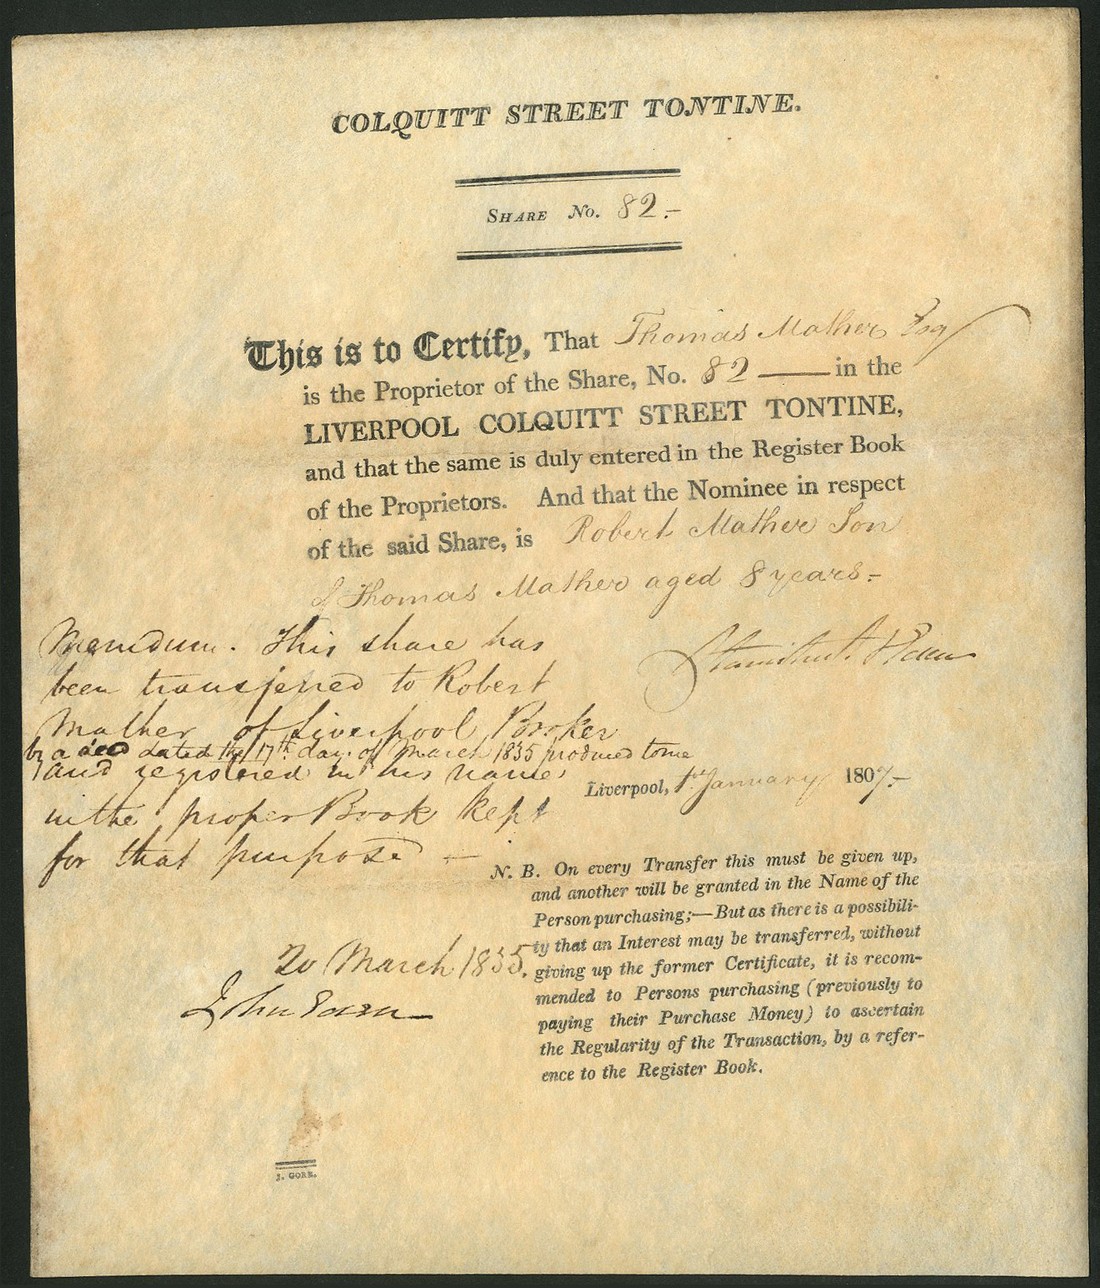 COLQUITT STREET TONTINE.
SHARE No. 82.-
This is to Certify, That Thomas Mather Esq
is the Proprietor of the Share, No. 82 — in the
LIVERPOOL COLQUITT STREET TONTINE,
and that the same is duly entered in the Register Book
of the Proprietors. And that the Nominee in respect
of the said Share, is Robert Mather Son
of Thomas Mather aged 8 years-
Memdum. This share has
been transferred to Robert
Mather of Liverpool Broker
by a deed dated the 17th day of March 1835 produced to me
and registered in his name
in the proper Book kept
for that purpose —
20 March 1835.
John
Liverpool, 1st January 1807-
N. B. On every Transfer this must be given up,
and another will be granted in the Name of the
Person purchasing;—But as there is a possibili-
ty that an Interest may be transferred, without
giving up the former Certificate, it is recom-
mended to Persons purchasing (previously to
paying their Purchase Money) to ascertain
the Regularity of the Transaction, by a refer-
ence to the Register Book.
J. GORE.